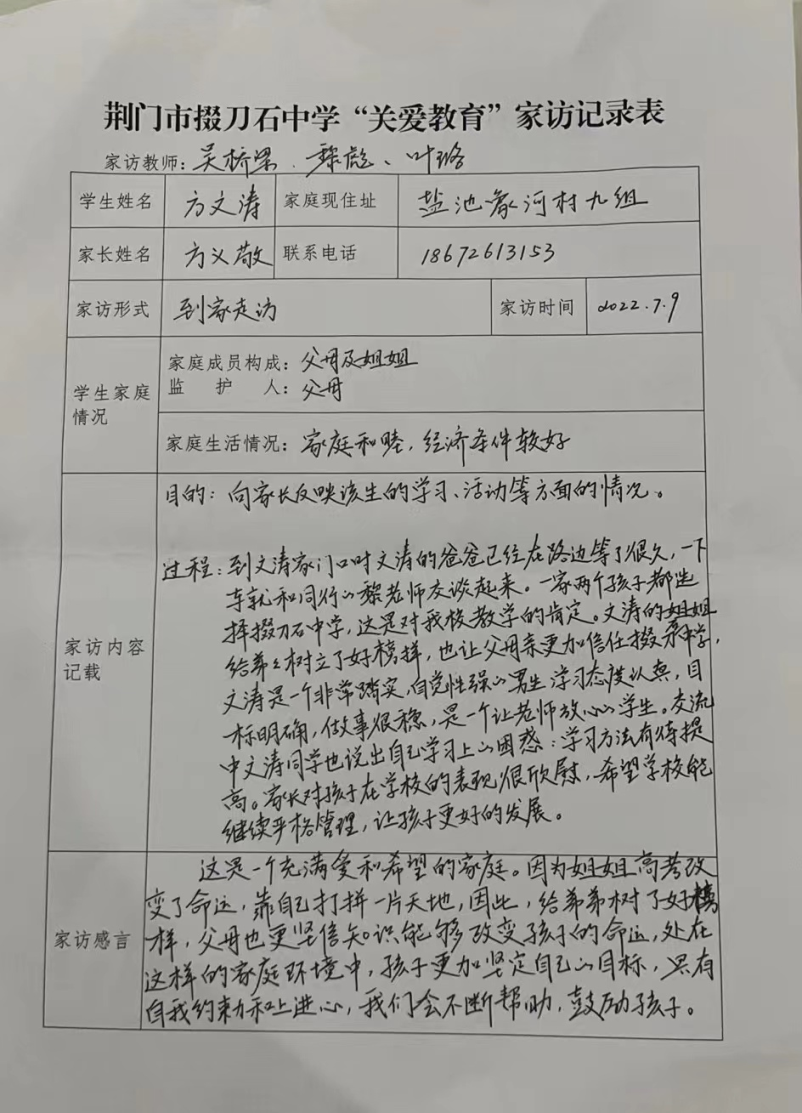 荆门市掇刀石中学“关爱教育”家访记录表
家访教师：吴桥梁、黎彪、叶璐
学生姓名 方文涛 家庭现住址 盐池河村九组
家长姓名 方义敬 联系电话 18672613153
家访形式 到家走访 家访时间 2022.7.9
学生家庭情况
家庭成员构成：父母及姐姐
监护人：父母
家庭生活情况：家庭和睦，经济条件较好
家访内容记载
目的：向家长反映该生的学习、活动等方面的情况。
过程：到文涛家门口时文涛的爸爸已经在路边等了很久，一下
车就和同行的黎老师交谈起来。一家两个孩子都选
择掇刀石中学，这是对我校教学的肯定。文涛的姐姐
给弟弟树立了好榜样，也让父母亲更加信任掇石中学，
文涛是一个非常踏实，自觉性强的男生，学习态度认真，目
标明确，做事很稳，是一个让老师放心的学生。交流
中文涛同学也说出自己学习上的困惑：学习方法有待提
高。家长对孩子在学校的表现很欣慰，希望学校能
继续严格管理，让孩子更好的发展。
家访感言
这是一个充满爱和希望的家庭。因为姐姐高考改
变了命运，靠自己打拼一片天地，因此，给弟弟树了好榜
样，父母也更坚信知识能够改变孩子的命运，处在
这样的家庭环境中，孩子更加坚定自己的目标，只有
自我约束和上进心，我们会不断帮助，鼓励孩子。